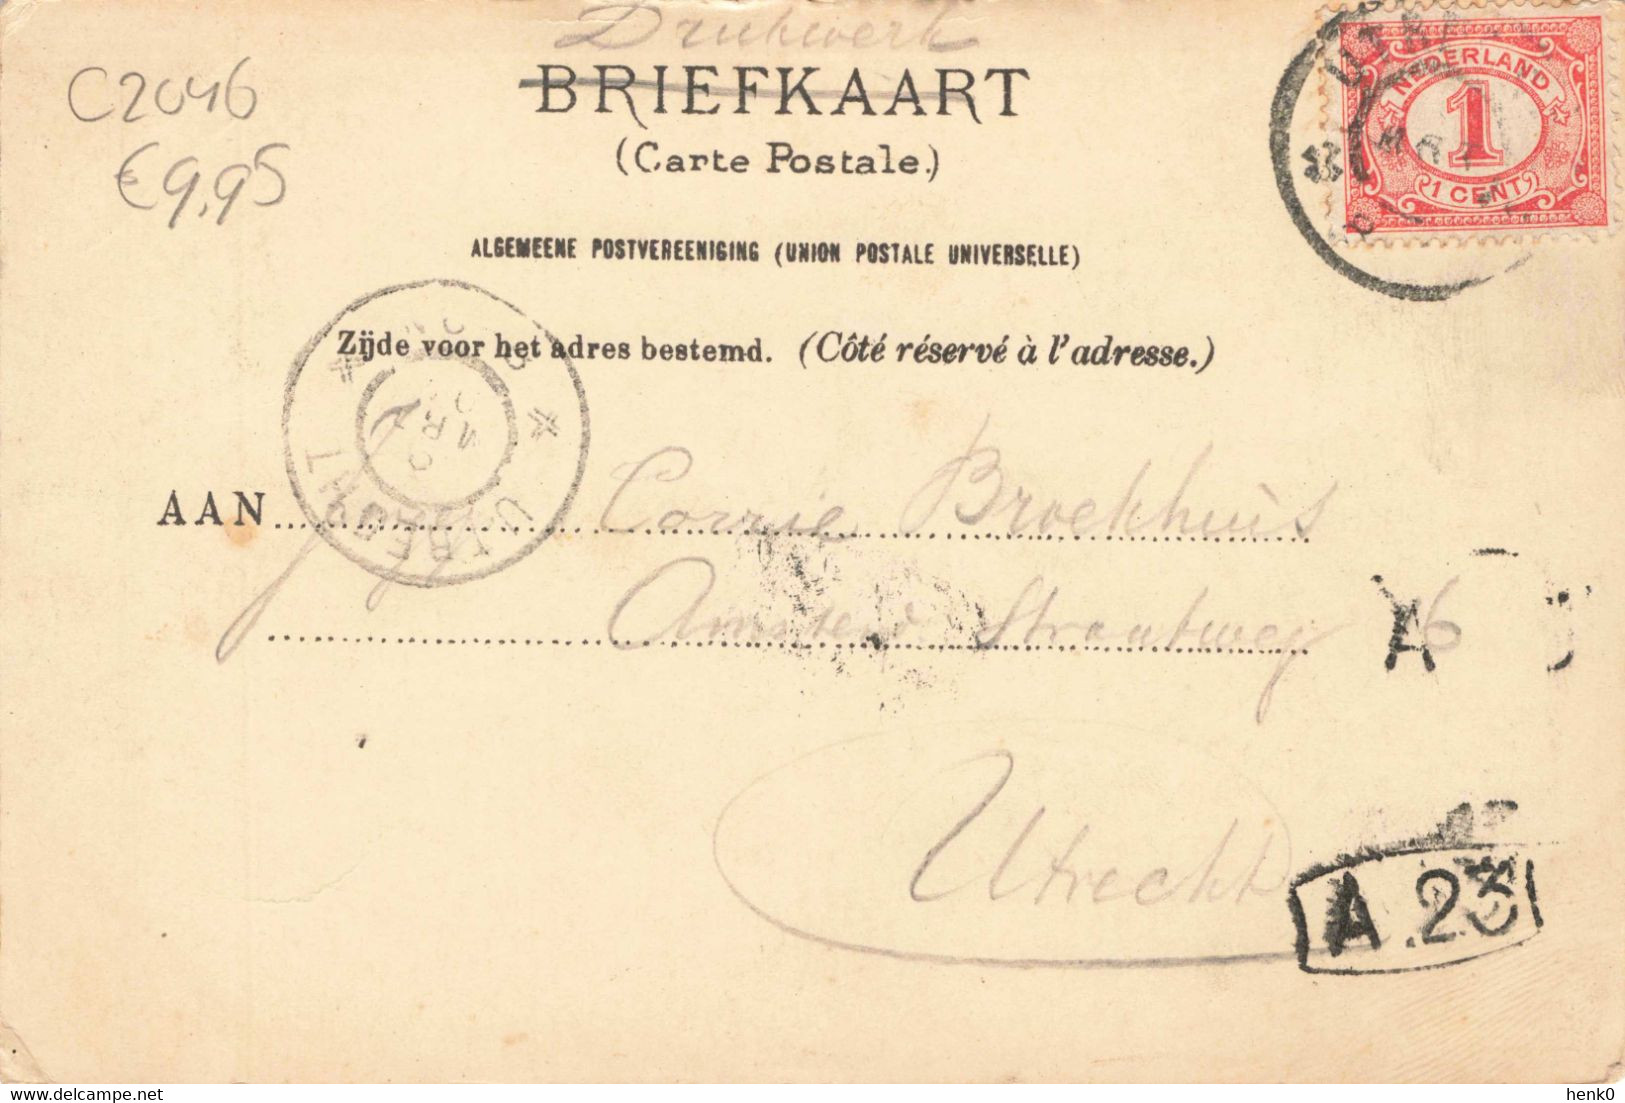 Drukwerk
BRIEFKAART
(Carte Postale.)
C2046
€9,95
NEDERLAND
1
1 CENT
ALGEMEENE POSTVEREENIGING (UNION POSTALE UNIVERSELLE)
Zijde voor het adres bestemd. (Côté réservé à l'adresse.)
UTRECHT
AAN Corrie Broekhuis
Straatweg 16
A
Utrecht
A 23
henk0